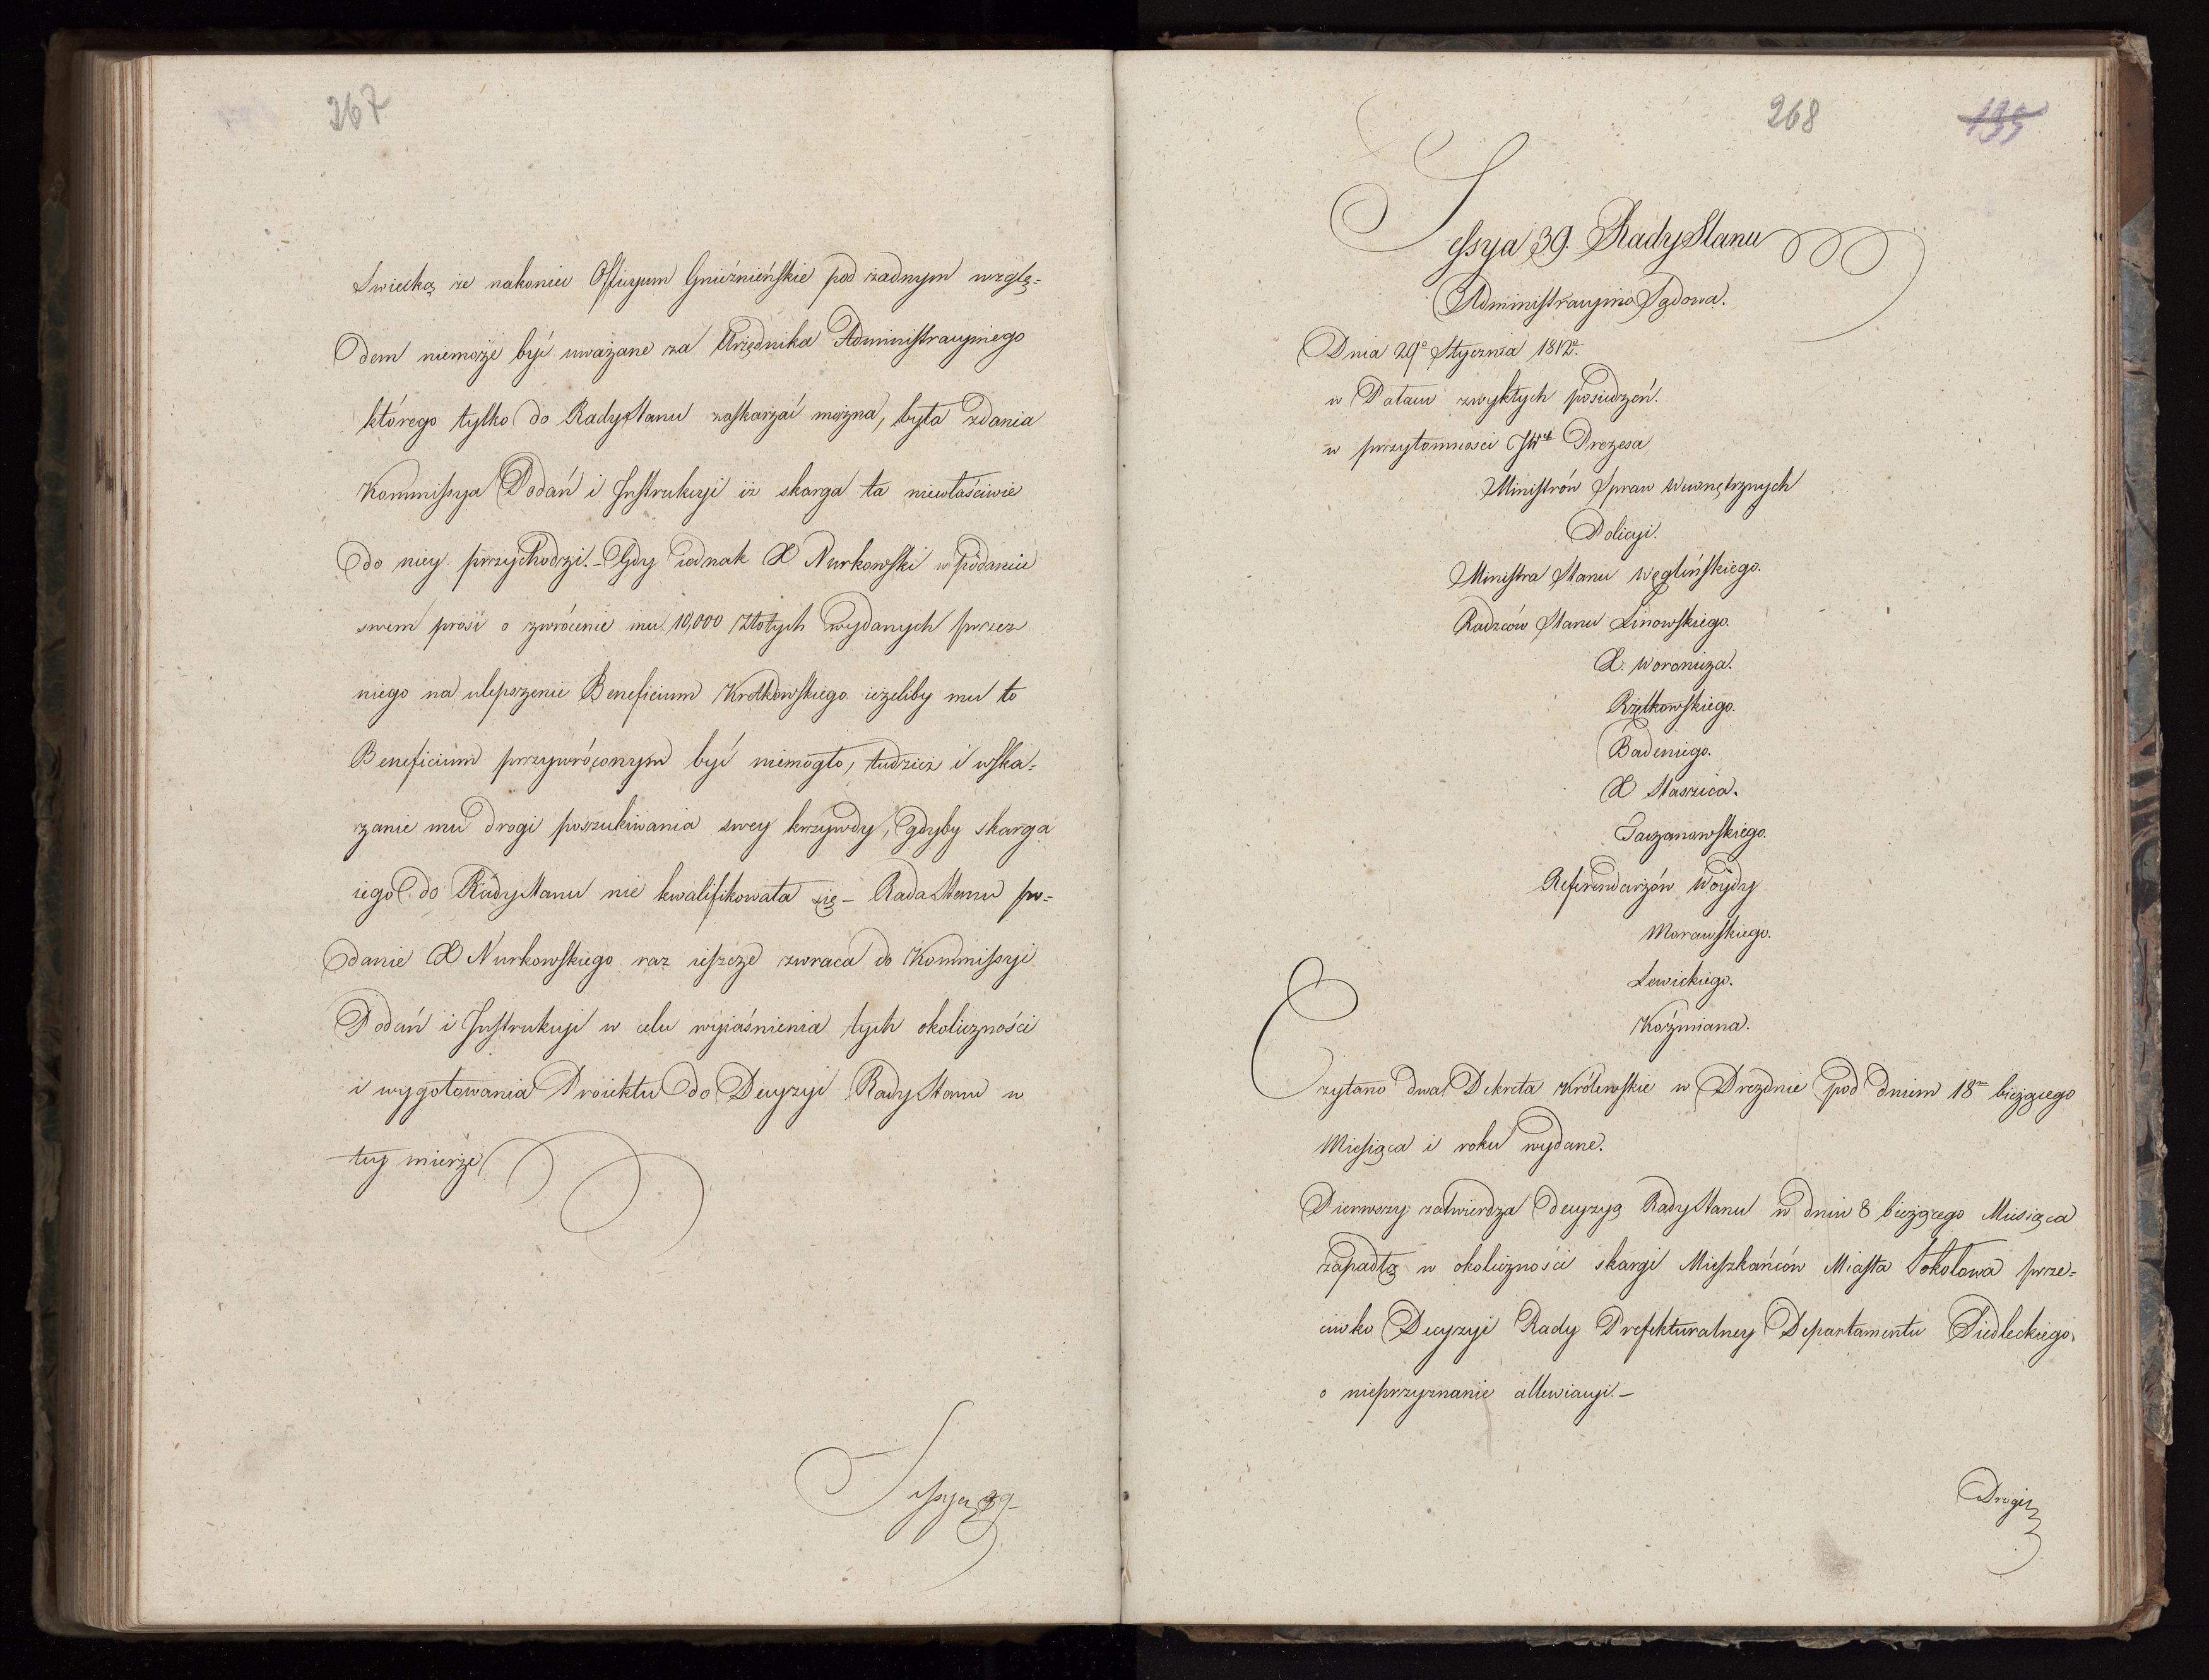 267
Swiecką że nakoniec Officyum Gnieźnieńskie pod żadnym wzglę=
dem niemoże być uważane za Urzędnika Administracyinego
którego tylko do Rady Stanu zaskarżać można, była zdania
Kommissya Podań i Instrukcyi iż skarga ta niewłaściwie
do niey przychodzi. – Gdy iednak X Nurkowski w podaniu
swem prosi o zwrócenie mu 10,000 Złotych wydanych przez
niego na ulepszenie Beneficium Krotkowskiego ieżeliby mu to
Beneficium przywróconym być niemogło, tudzież i wska=
zanie mu drogi poszukiwania swey krzywdy, gdyby skarga
iego do Rady Stanu nie kwalifikowała się – Rada Stanu po=
danie X Nurkowskiego raz ieszcze zwraca do Kommissyi
Podań i Instrukcyi w celu wyiaśnienia tych okoliczności
i wygotowania Proiektu do Decyzyi Rady Stanu w
tey mierze
Sessya 39
268
135
Sessya 39. Rady Stanu
Administracyino Sądowa.
Dnia 29º Stycznia 1812º.
w Pałacu zwykłych posiedzeń.
w przytomności JW Prezesa
Ministrów Spraw Wewnętrznych
Policyi.
Ministra Stanu Węglińskiego.
Radzców Stanu Linowskiego.
X. Woronicza.
Rzętkowskiego.
Badeniego.
X Staszica.
Taczanowskiego.
Referendarzów Woydy
Morawskiego.
Lewickiego.
Koźmiana.
Czytano dwa Dekreta Królewskie w Dreznie pod dniem 18m bieżącego
Miesiąca i roku wydane.
Pierwszy zatwierdza decyzyą Rady Stanu w dniu 8 bieżącego Miesiąca
zapadłą w okoliczności skargi Mieszkańców Miasta Sokołowa prze=
ciwko Decyzyi Rady Prefekturalney Departamentu Siedleckiego,
o nieprzyznanie allewiacyi. –
Drugi